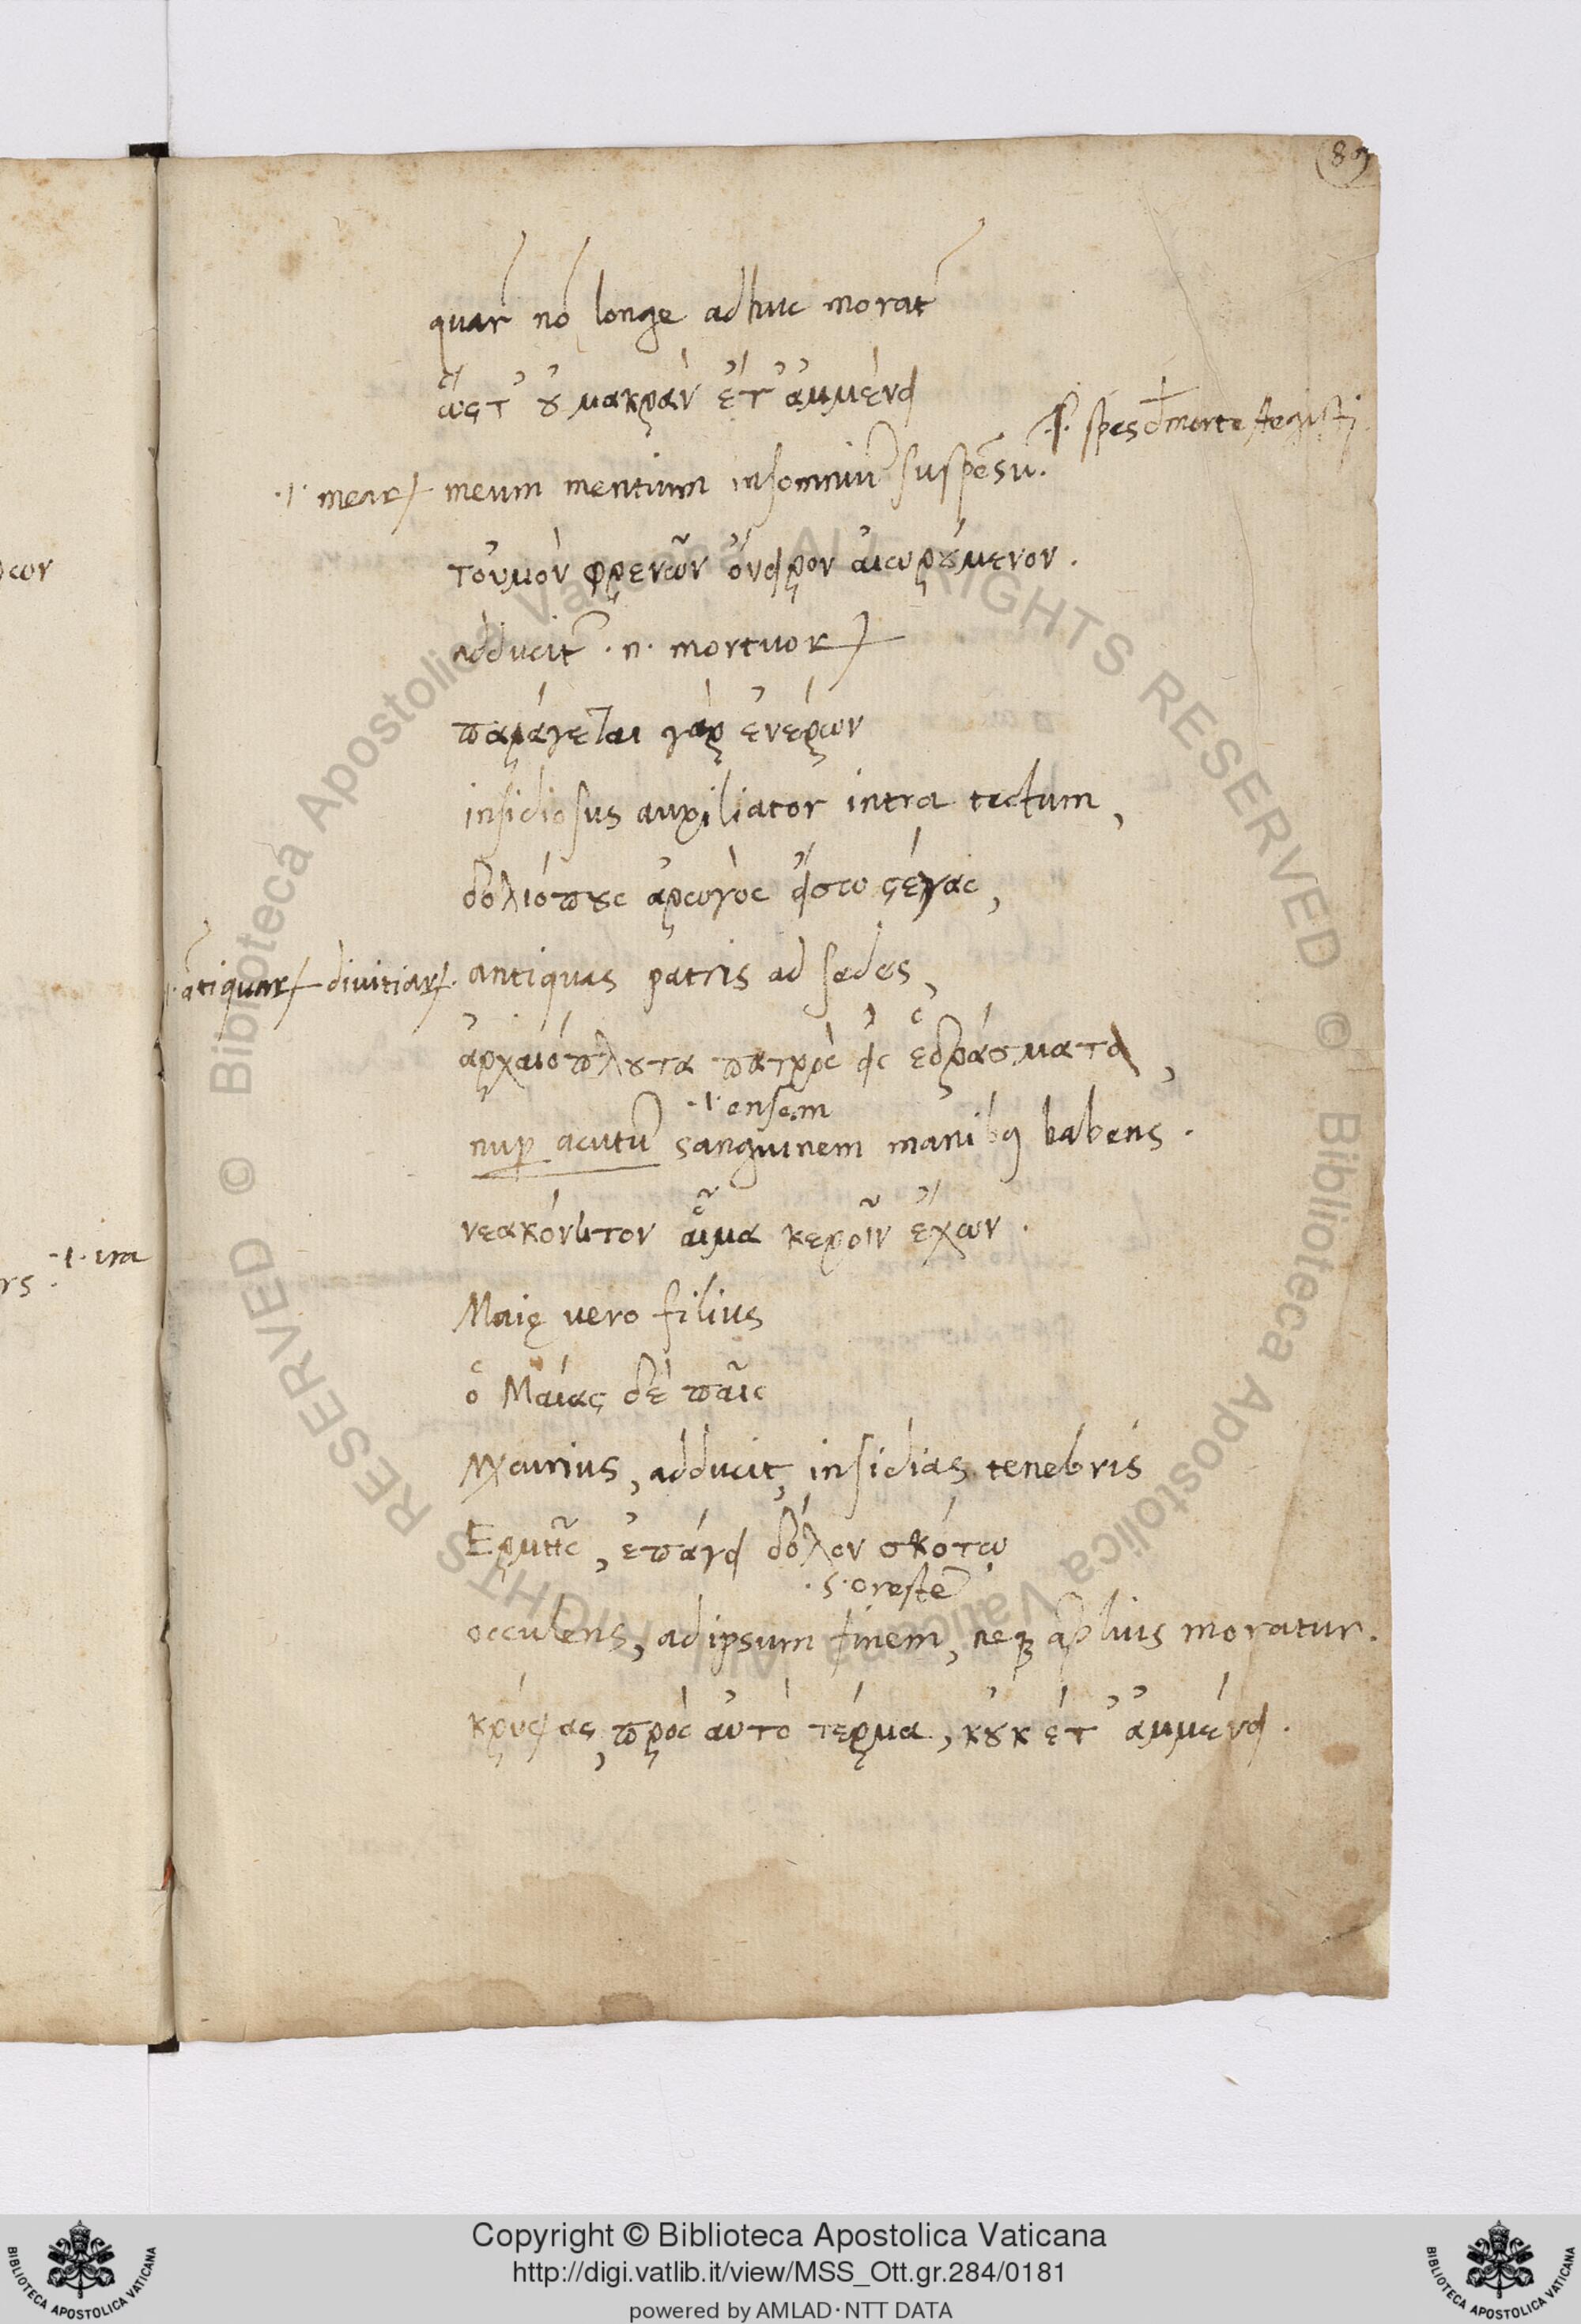 89
quar nō longe adhuc morat
ὥςτ' ȣ μακρὰν ἔτ' ἀμμένει
.s. spes d morte Aegisti
.l. mear meum mentium insomniū suspēsū.
τοὐμὸν φρενῶν ὄνειρον αἰωρȣ́μενον.
adducit .n. mortuor
παράγεται γὰρ ἐνέρων
insidiosus auxiliator intra tectum,
δολιόπȣς ἀρωγὸς εἴσω ϛέγας,
ātiquar divitiar. antiquas patris ad sedes,
ἀρχαιόπλȣτα πατρὸς εἰς ἑδράσματα,
.l. ensem
nup acutū sanguinem manibꝯ habens.
νεακόνητον αἷμα κεροῖν ἔχων.
Maię vero filius
.l. ira
ὁ Μαίας δὲ παῖς
adducit, insidias tenebris
Ερμῆς, ἐπάγει δόλον σκότῳ
.s. orestē
occulens, ad ipsum finem, neqꝫ āplius moratur.
κρύψας, πρὸς αὐτὸ τέρμα, κȣ̓κ ἔτ' ἀμμένει.
Copyright © Biblioteca Apostolica Vaticana
http://digi.vatlib.it/view/MSS_Ott.gr.284/0181
powered by AMLAD·NTT DATA
BIBLIOTECA APOSTOLICA VATICANA
BIBLIOTECA APOSTOLICA VATICANA